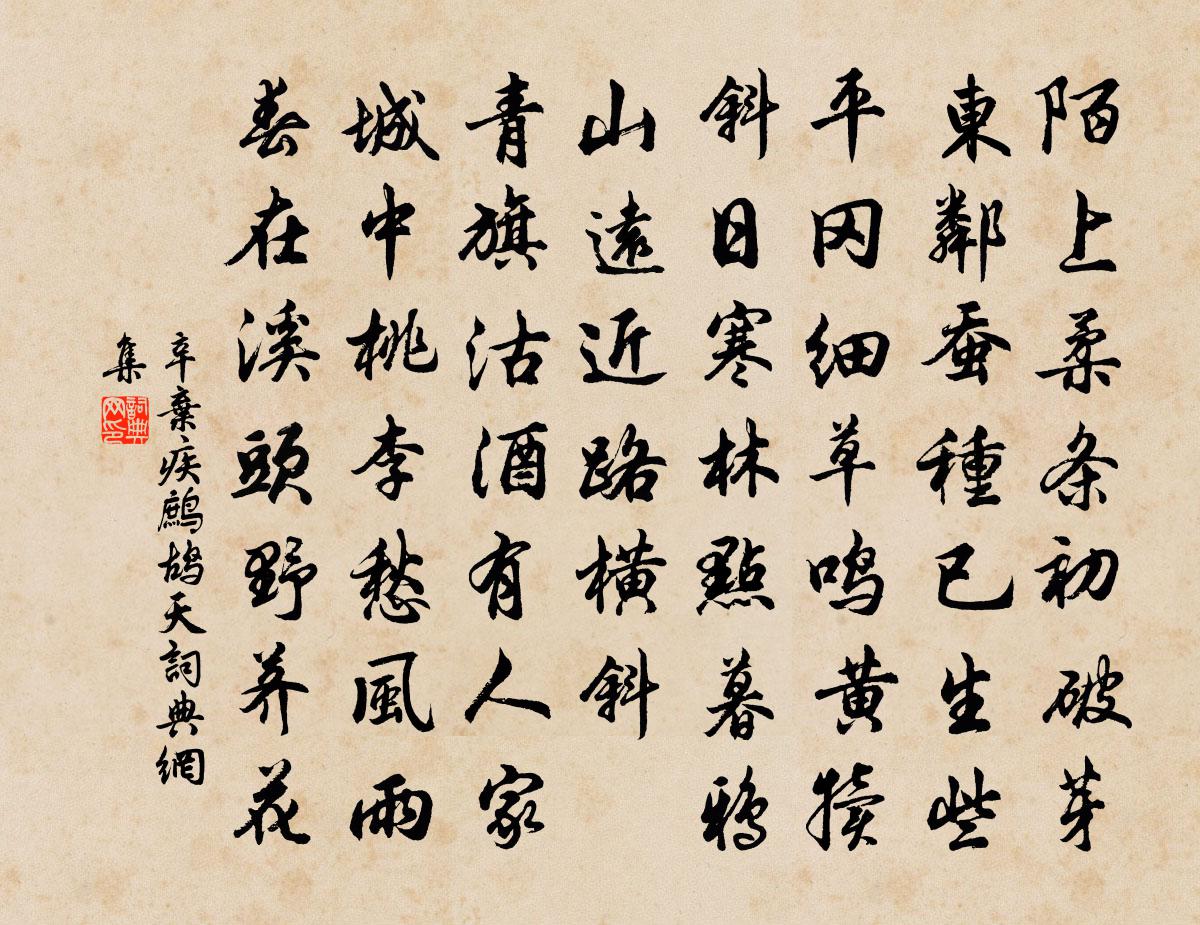 陌上柔条初破芽
東鄰蚕種已生些
平冈细草鸣黄犊
斜日寒林點暮鴉
山遠近路橫斜
青旗沽酒有人家
城中桃李愁風雨
春在溪頭野荠花
辛棄疾鷓鸪天詞典網
集
詞典
网印